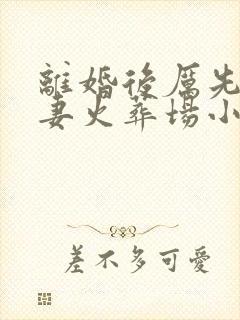 離婚後厲先
妻火葬場小
差不多可愛